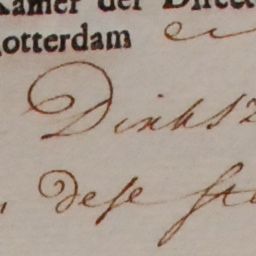 Kamer der Direct
Rotterdam en
Dirksz
dese